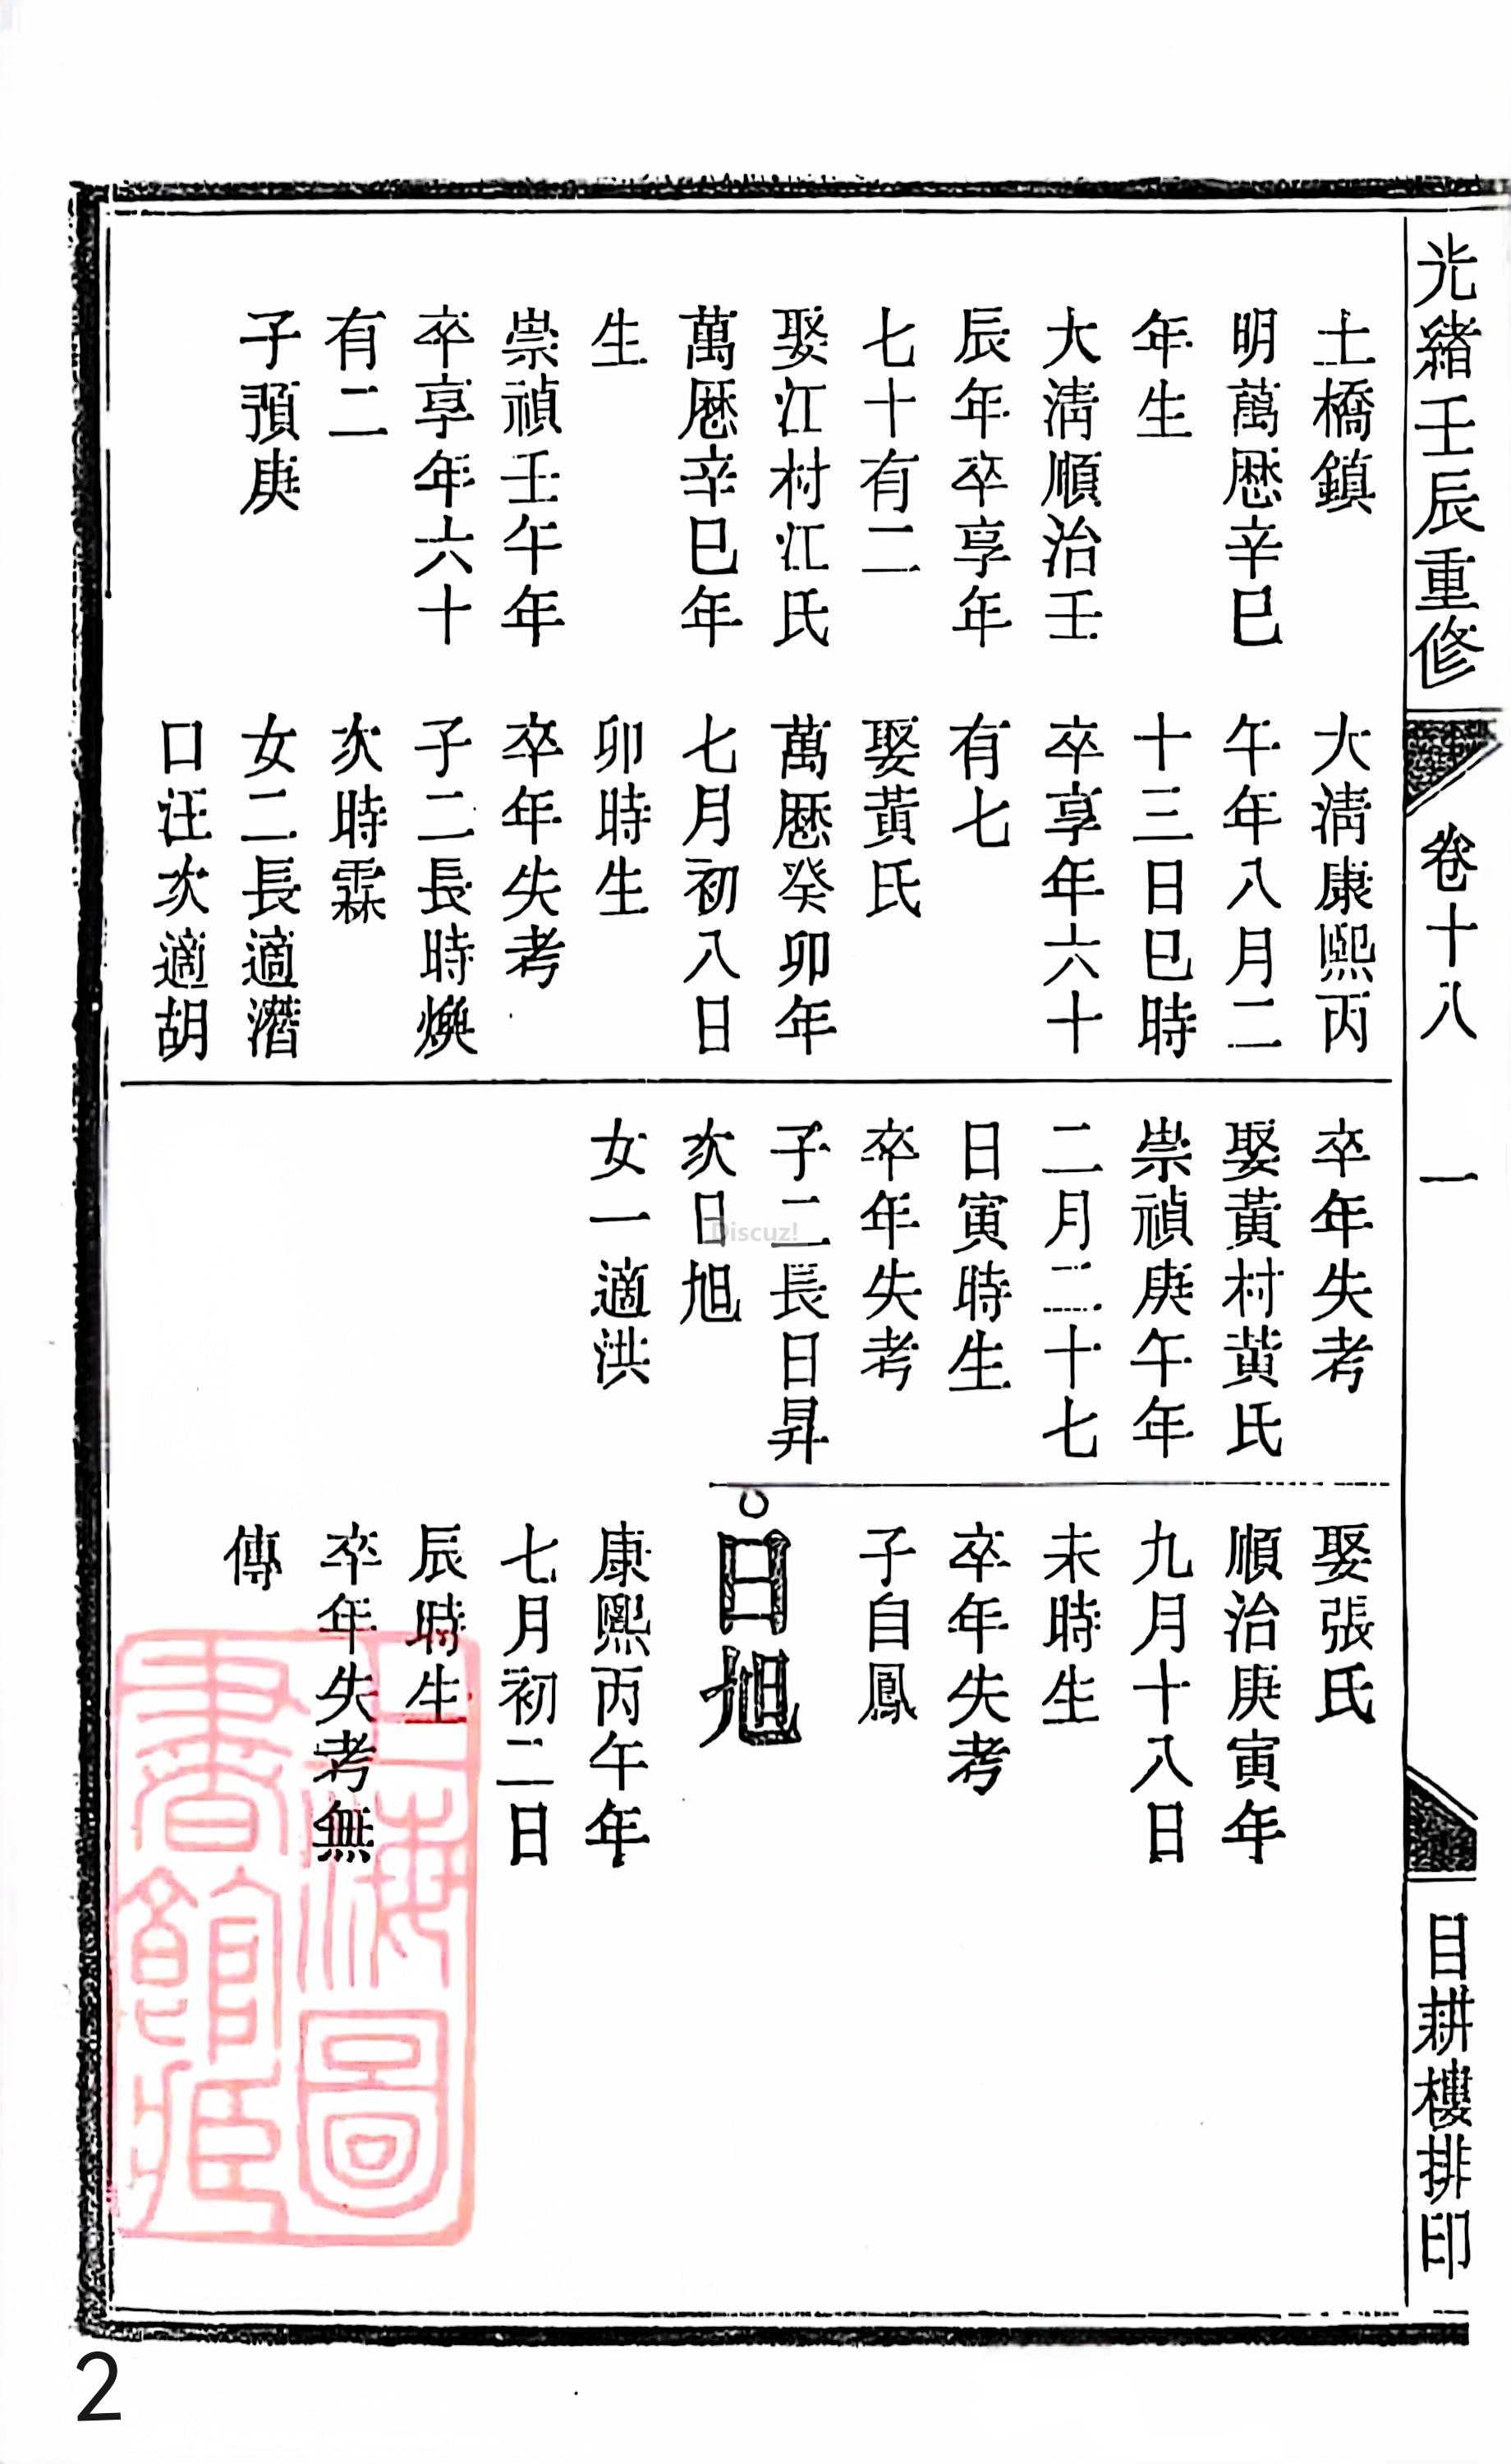 光緒壬辰重修
卷十八
一
目耕樓排印
土橋鎮
明萬厯辛巳
年生
大清順治壬
辰年卒享年
七十有二
娶江村江氏
萬厯辛巳年
生
崇禎壬午年
卒享年六十
有二
子預庚
大清康熙丙
午年八月二
十三日巳時
卒享年六十
有七
娶黃氏
萬厯癸卯年
七月初八日
卯時生
卒年失考
子二長時煥
次時霖
女二長適潛
口汪次適胡
卒年失考
娶黃村黃氏
崇禎庚午年
二月二十七
日寅時生
卒年失考
子二長日昇
次日旭
女一適洪
娶張氏
順治庚寅年
九月十八日
未時生
卒年失考
子自鳳
日旭
康熙丙午年
七月初二日
辰時生
卒年失考無
傳
上海圖
書館藏
Discuz!
2